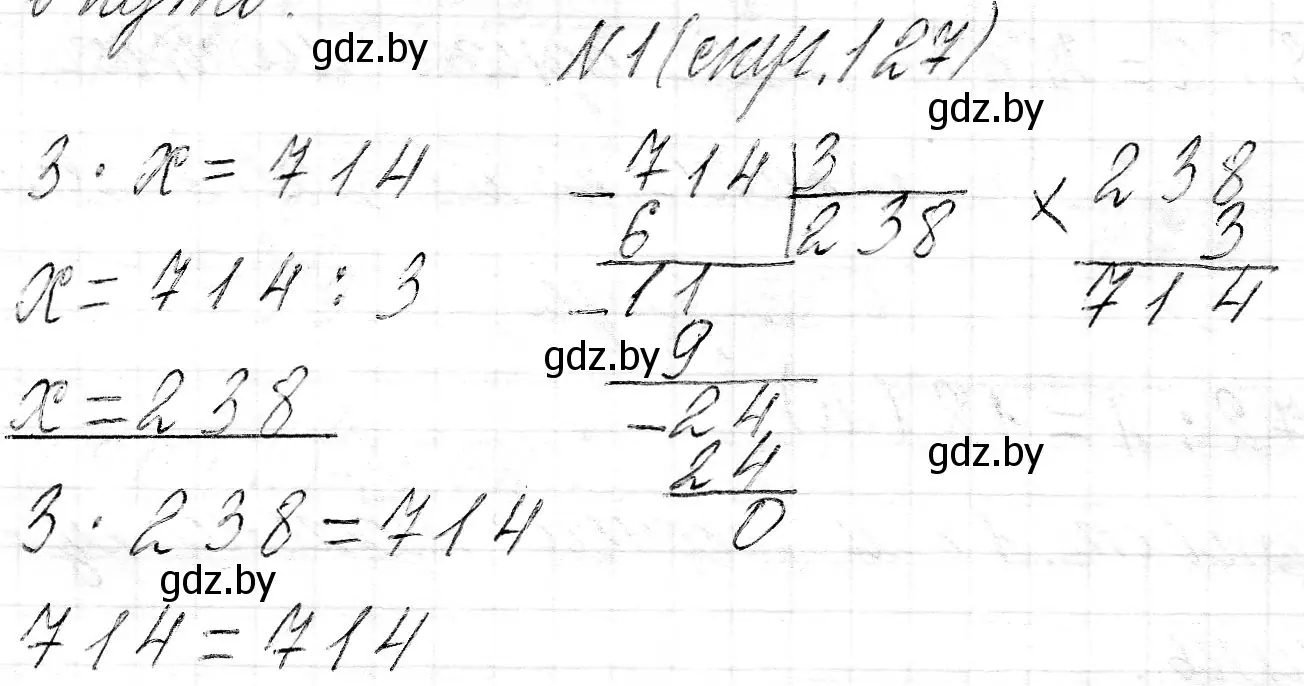 gdz.by
N1 (стр. 127)
gdz.by
3 · x = 714
x = 714 : 3
x = 238
3 · 238 = 714
gdz.by
714 = 714
- 714 | 3
6 | 238
- 11
gdz.by
9
- 24
24
0
× 238
3
714
gdz.by